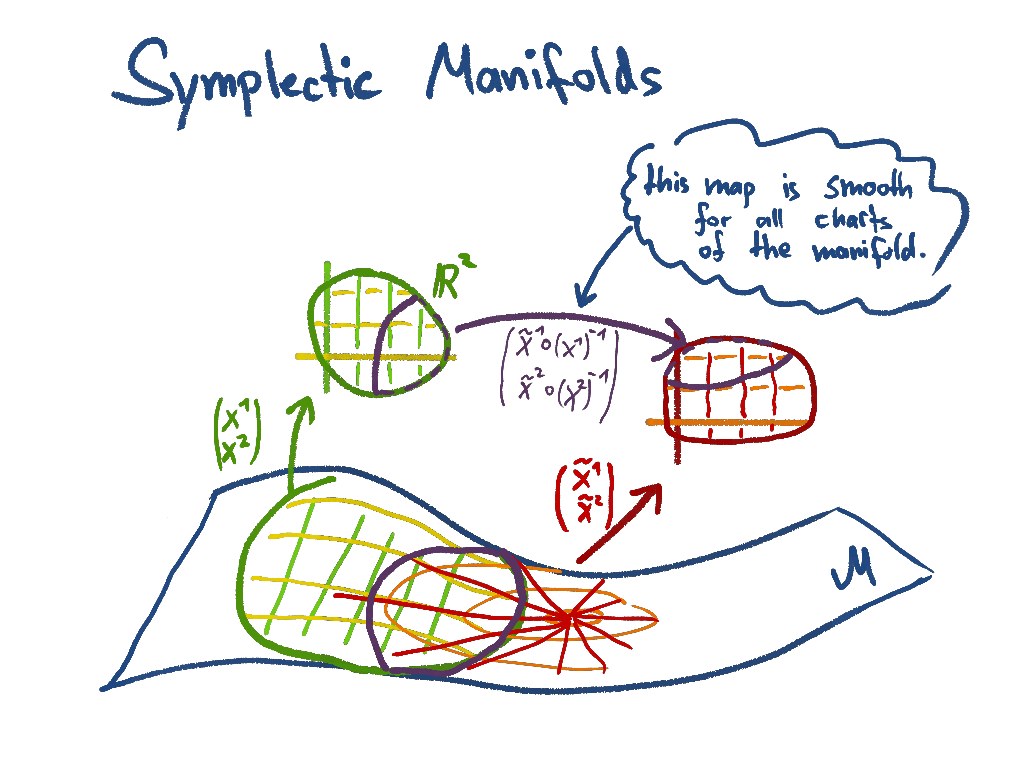 Symplectic Manifolds
this map is smooth
for all charts
of the manifold.
ℝ²
(x̃¹∘(x¹)⁻¹
x̃²∘(x²)⁻¹)
(x¹
x²)
(x̃¹
x̃²)
M